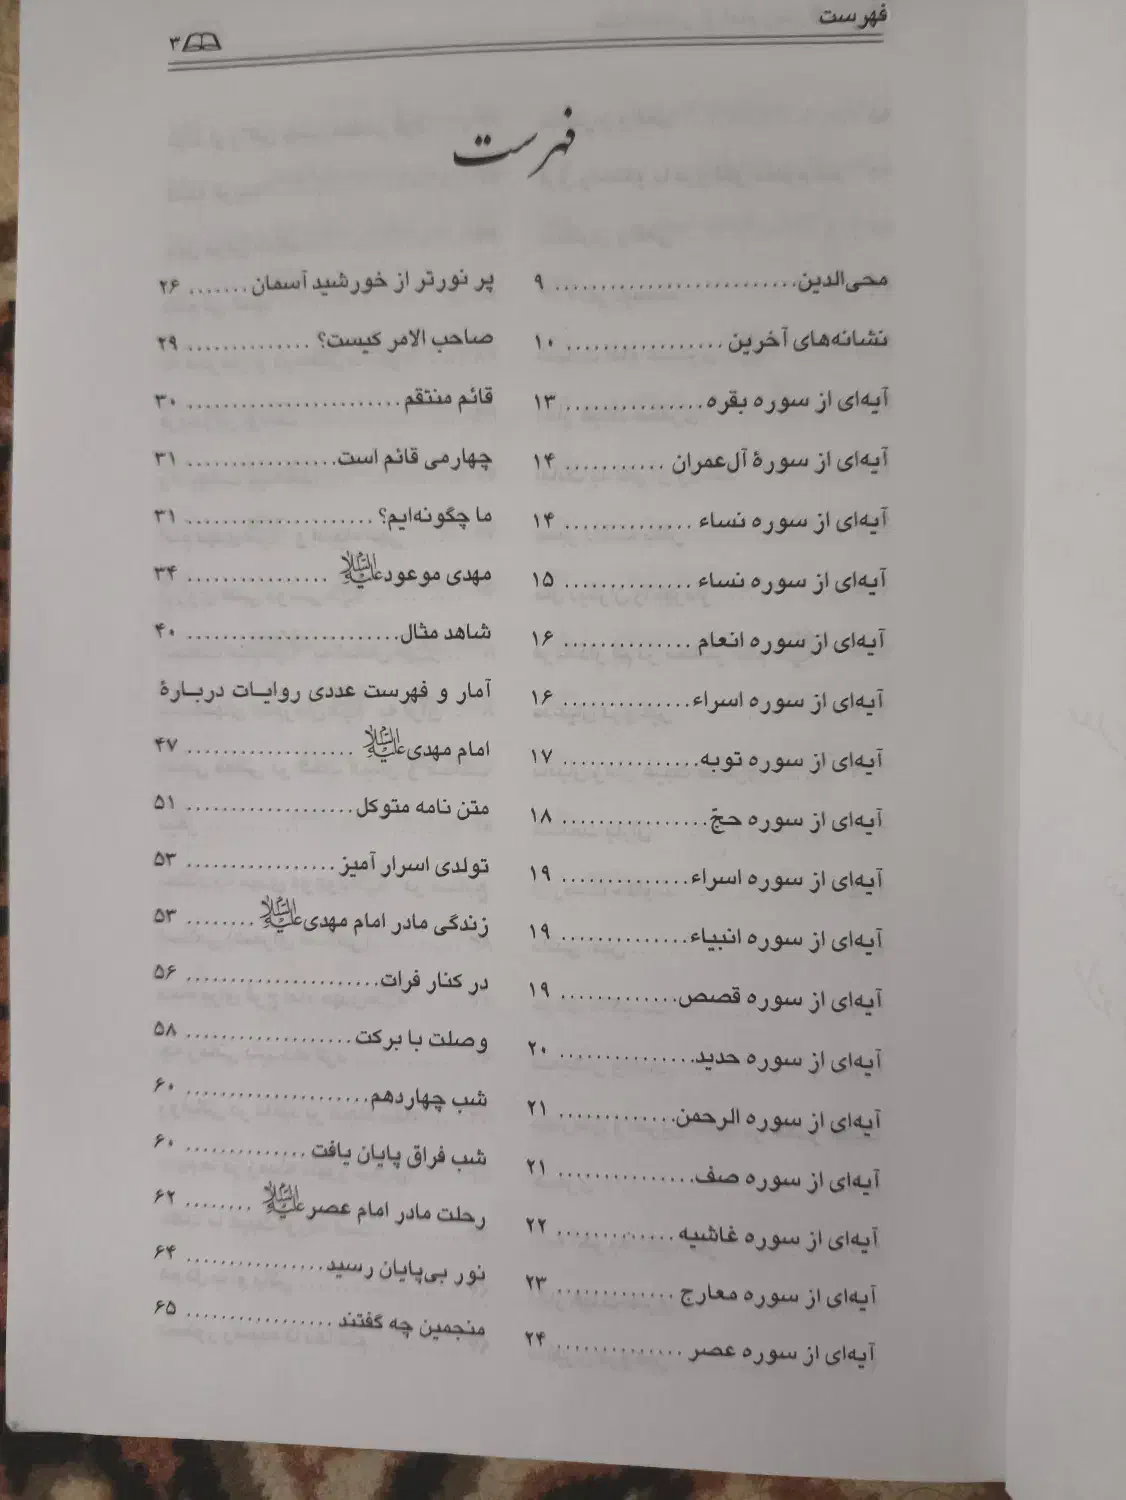 فهرست
۳
فهرست
محی‌الدین.......................... ۹
نشانه‌های آخرین ................. ۱۰
آیه‌ای از سوره بقره............... ۱۳
آیه‌ای از سورهٔ آل‌عمران ........... ۱۴
آیه‌ای از سوره نساء .............. ۱۴
آیه‌ای از سوره نساء .............. ۱۵
آیه‌ای از سوره انعام .............. ۱۶
آیه‌ای از سوره اسراء.............. ۱۶
آیه‌ای از سوره توبه............... ۱۷
آیه‌ای از سوره حجّ................ ۱۸
آیه‌ای از سوره اسراء.............. ۱۹
آیه‌ای از سوره انبیاء.............. ۱۹
آیه‌ای از سوره قصص............. ۱۹
آیه‌ای از سوره حدید............... ۲۰
آیه‌ای از سوره الرحمن............. ۲۱
آیه‌ای از سوره صف............... ۲۱
آیه‌ای از سوره غاشیه ............. ۲۲
آیه‌ای از سوره معارج ............. ۲۳
آیه‌ای از سوره عصر .............. ۲۴
پر نورتر از خورشید آسمان ....... ۲۶
صاحب الامر کیست؟ .............. ۲۹
قائم منتقم........................ ۳۰
چهارمی قائم است................. ۳۱
ما چگونه‌ایم؟ ..................... ۳۱
مهدی موعود علیه‌السلام ................ ۳۴
شاهد مثال........................ ۴۰
آمار و فهرست عددی روایات دربارهٔ
امام مهدی علیه‌السلام ................... ۴۷
متن نامه متوکل................... ۵۱
تولدی اسرار آمیز................. ۵۳
زندگی مادر امام مهدی علیه‌السلام ........ ۵۳
در کنار فرات...................... ۵۶
وصلت با برکت................... ۵۸
شب چهاردهم..................... ۶۰
شب فراق پایان یافت .............. ۶۰
رحلت مادر امام عصر علیه‌السلام ........ ۶۲
نور بی‌پایان رسید................ ۶۴
منجمین چه گفتند ................. ۶۵